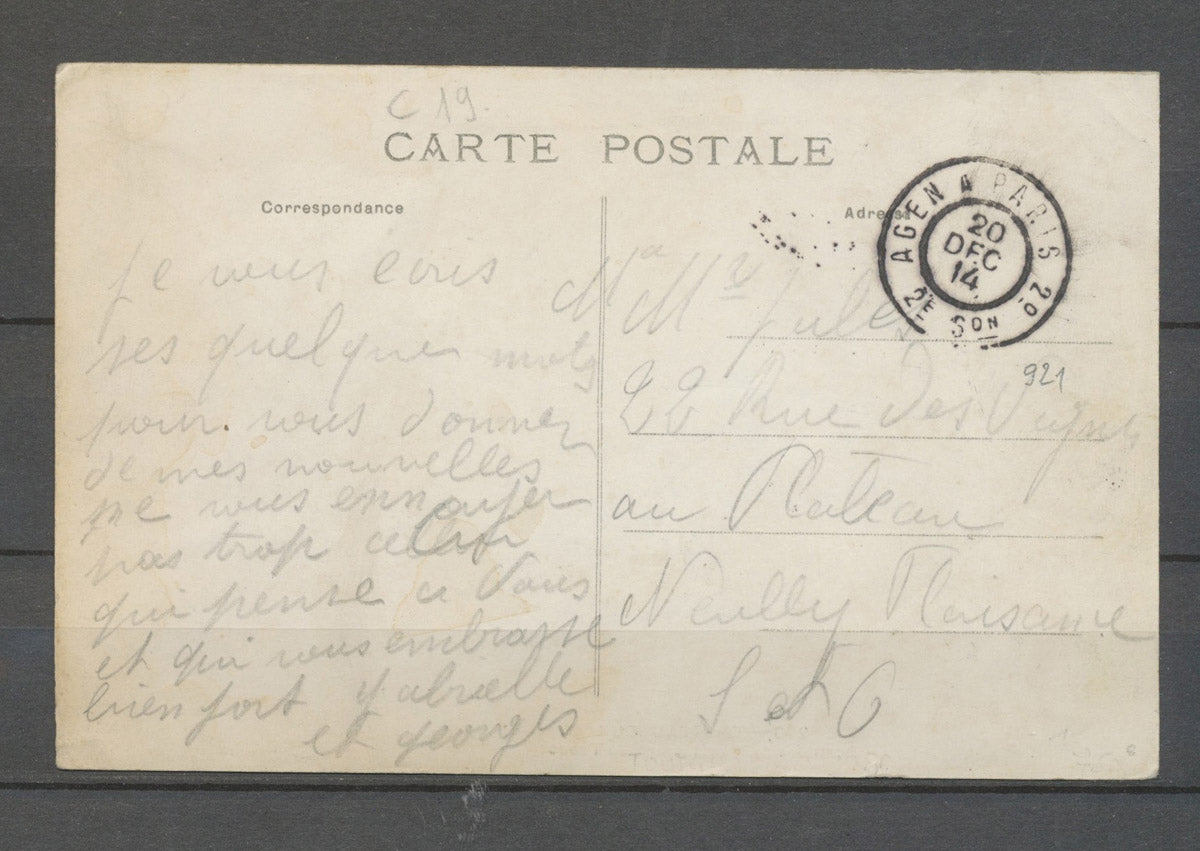 C 19.
CARTE POSTALE
Correspondance
Adresse
AGEN A PARIS 2º
20
DEC
14
2E SON
921
Je vous ecris
ses quelques mots
pour vous donner
de mes nouvelles
ne vous ennuyer
pas trop
qui pense a vous
et qui vous embrasse
bien fort gabrielle
et georges
Mr Me Jules
22 Rue des Vignes
au Plateau
Neuilly Plaisance
S et O